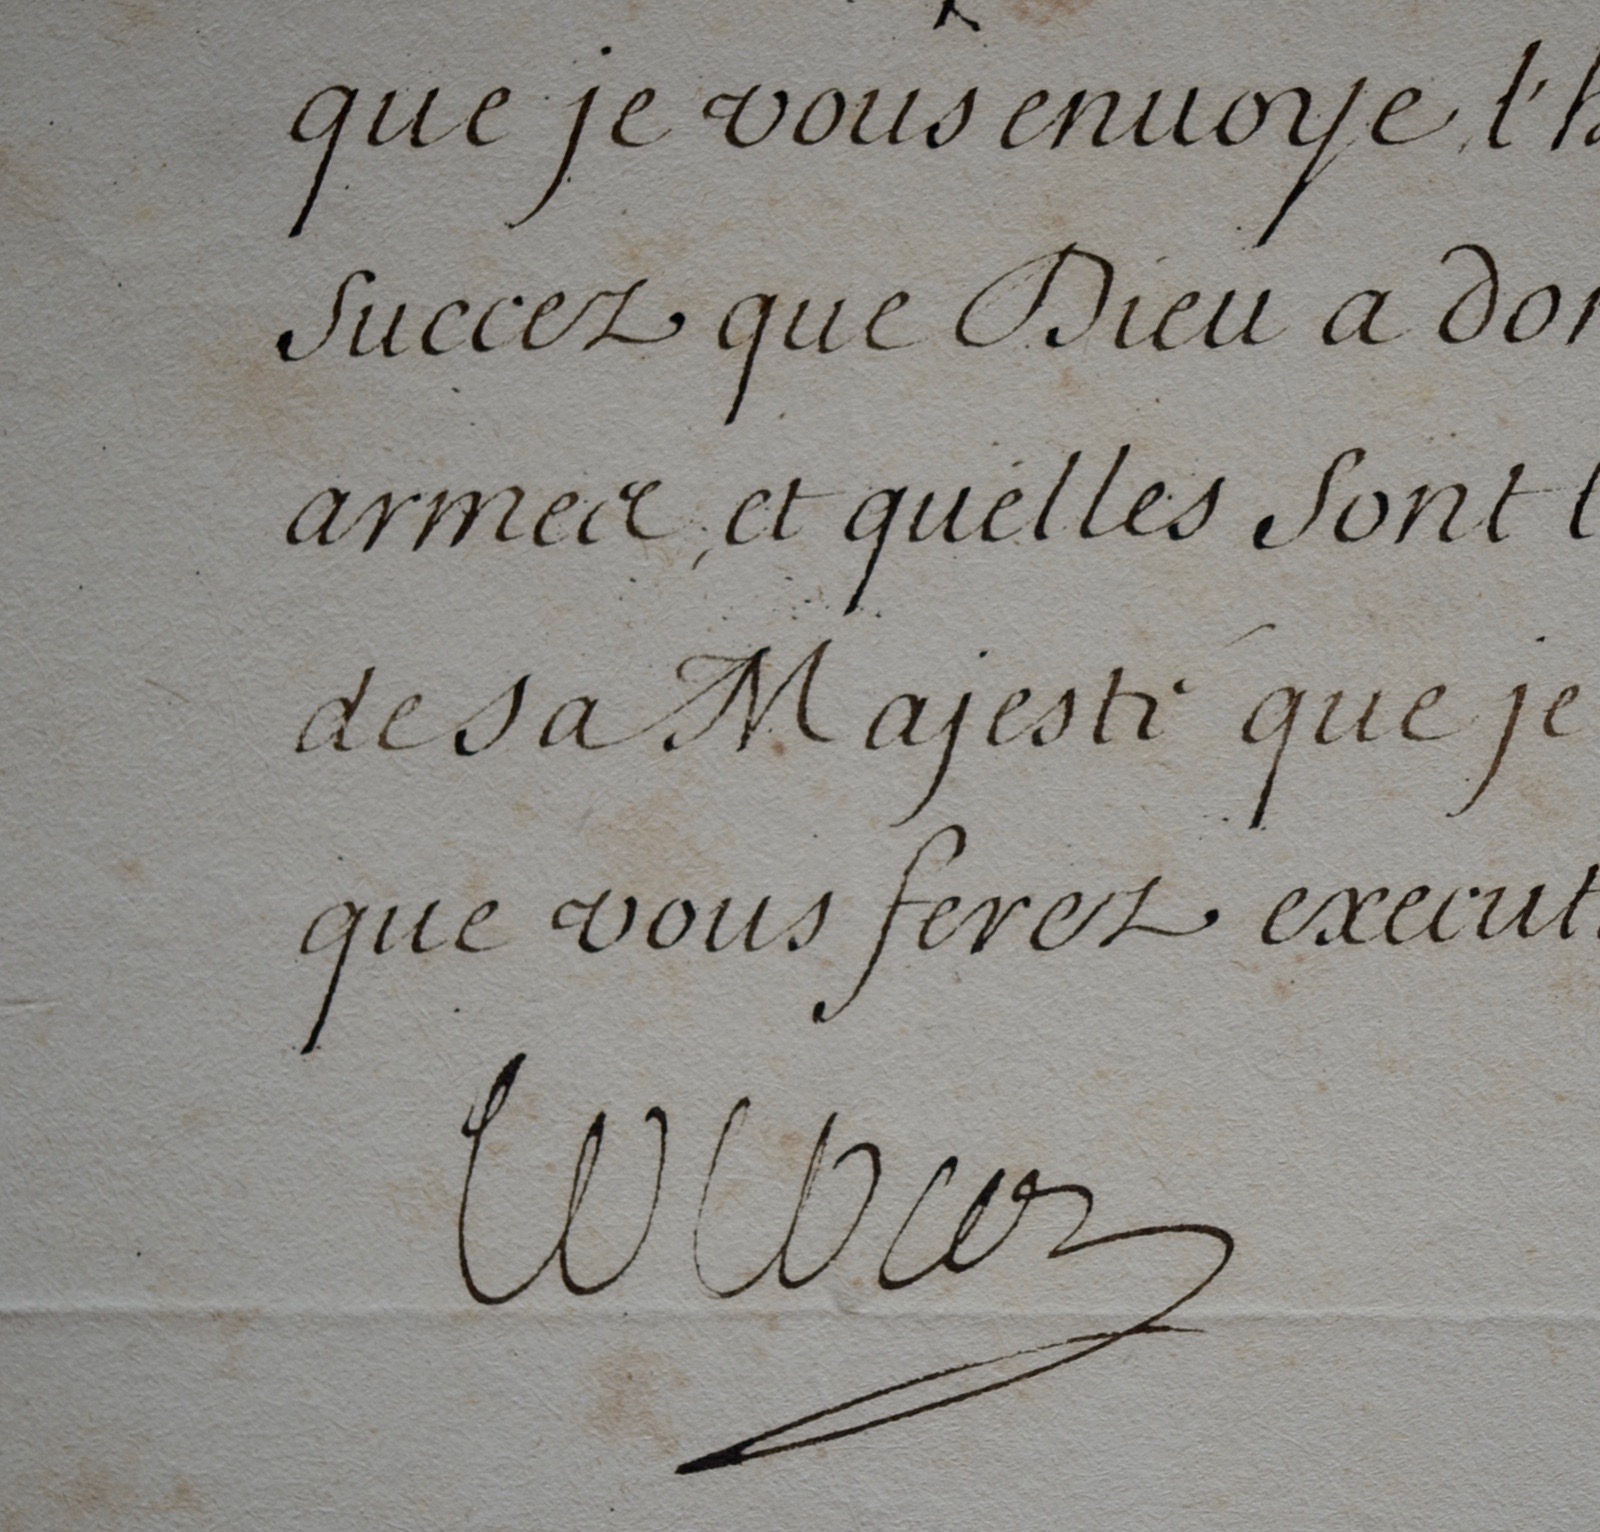 que je vous enuoye l'h
Succez que Dieu a don
armeé, et quelles Sont l
de sa Majesté que je
que vous ferez execut